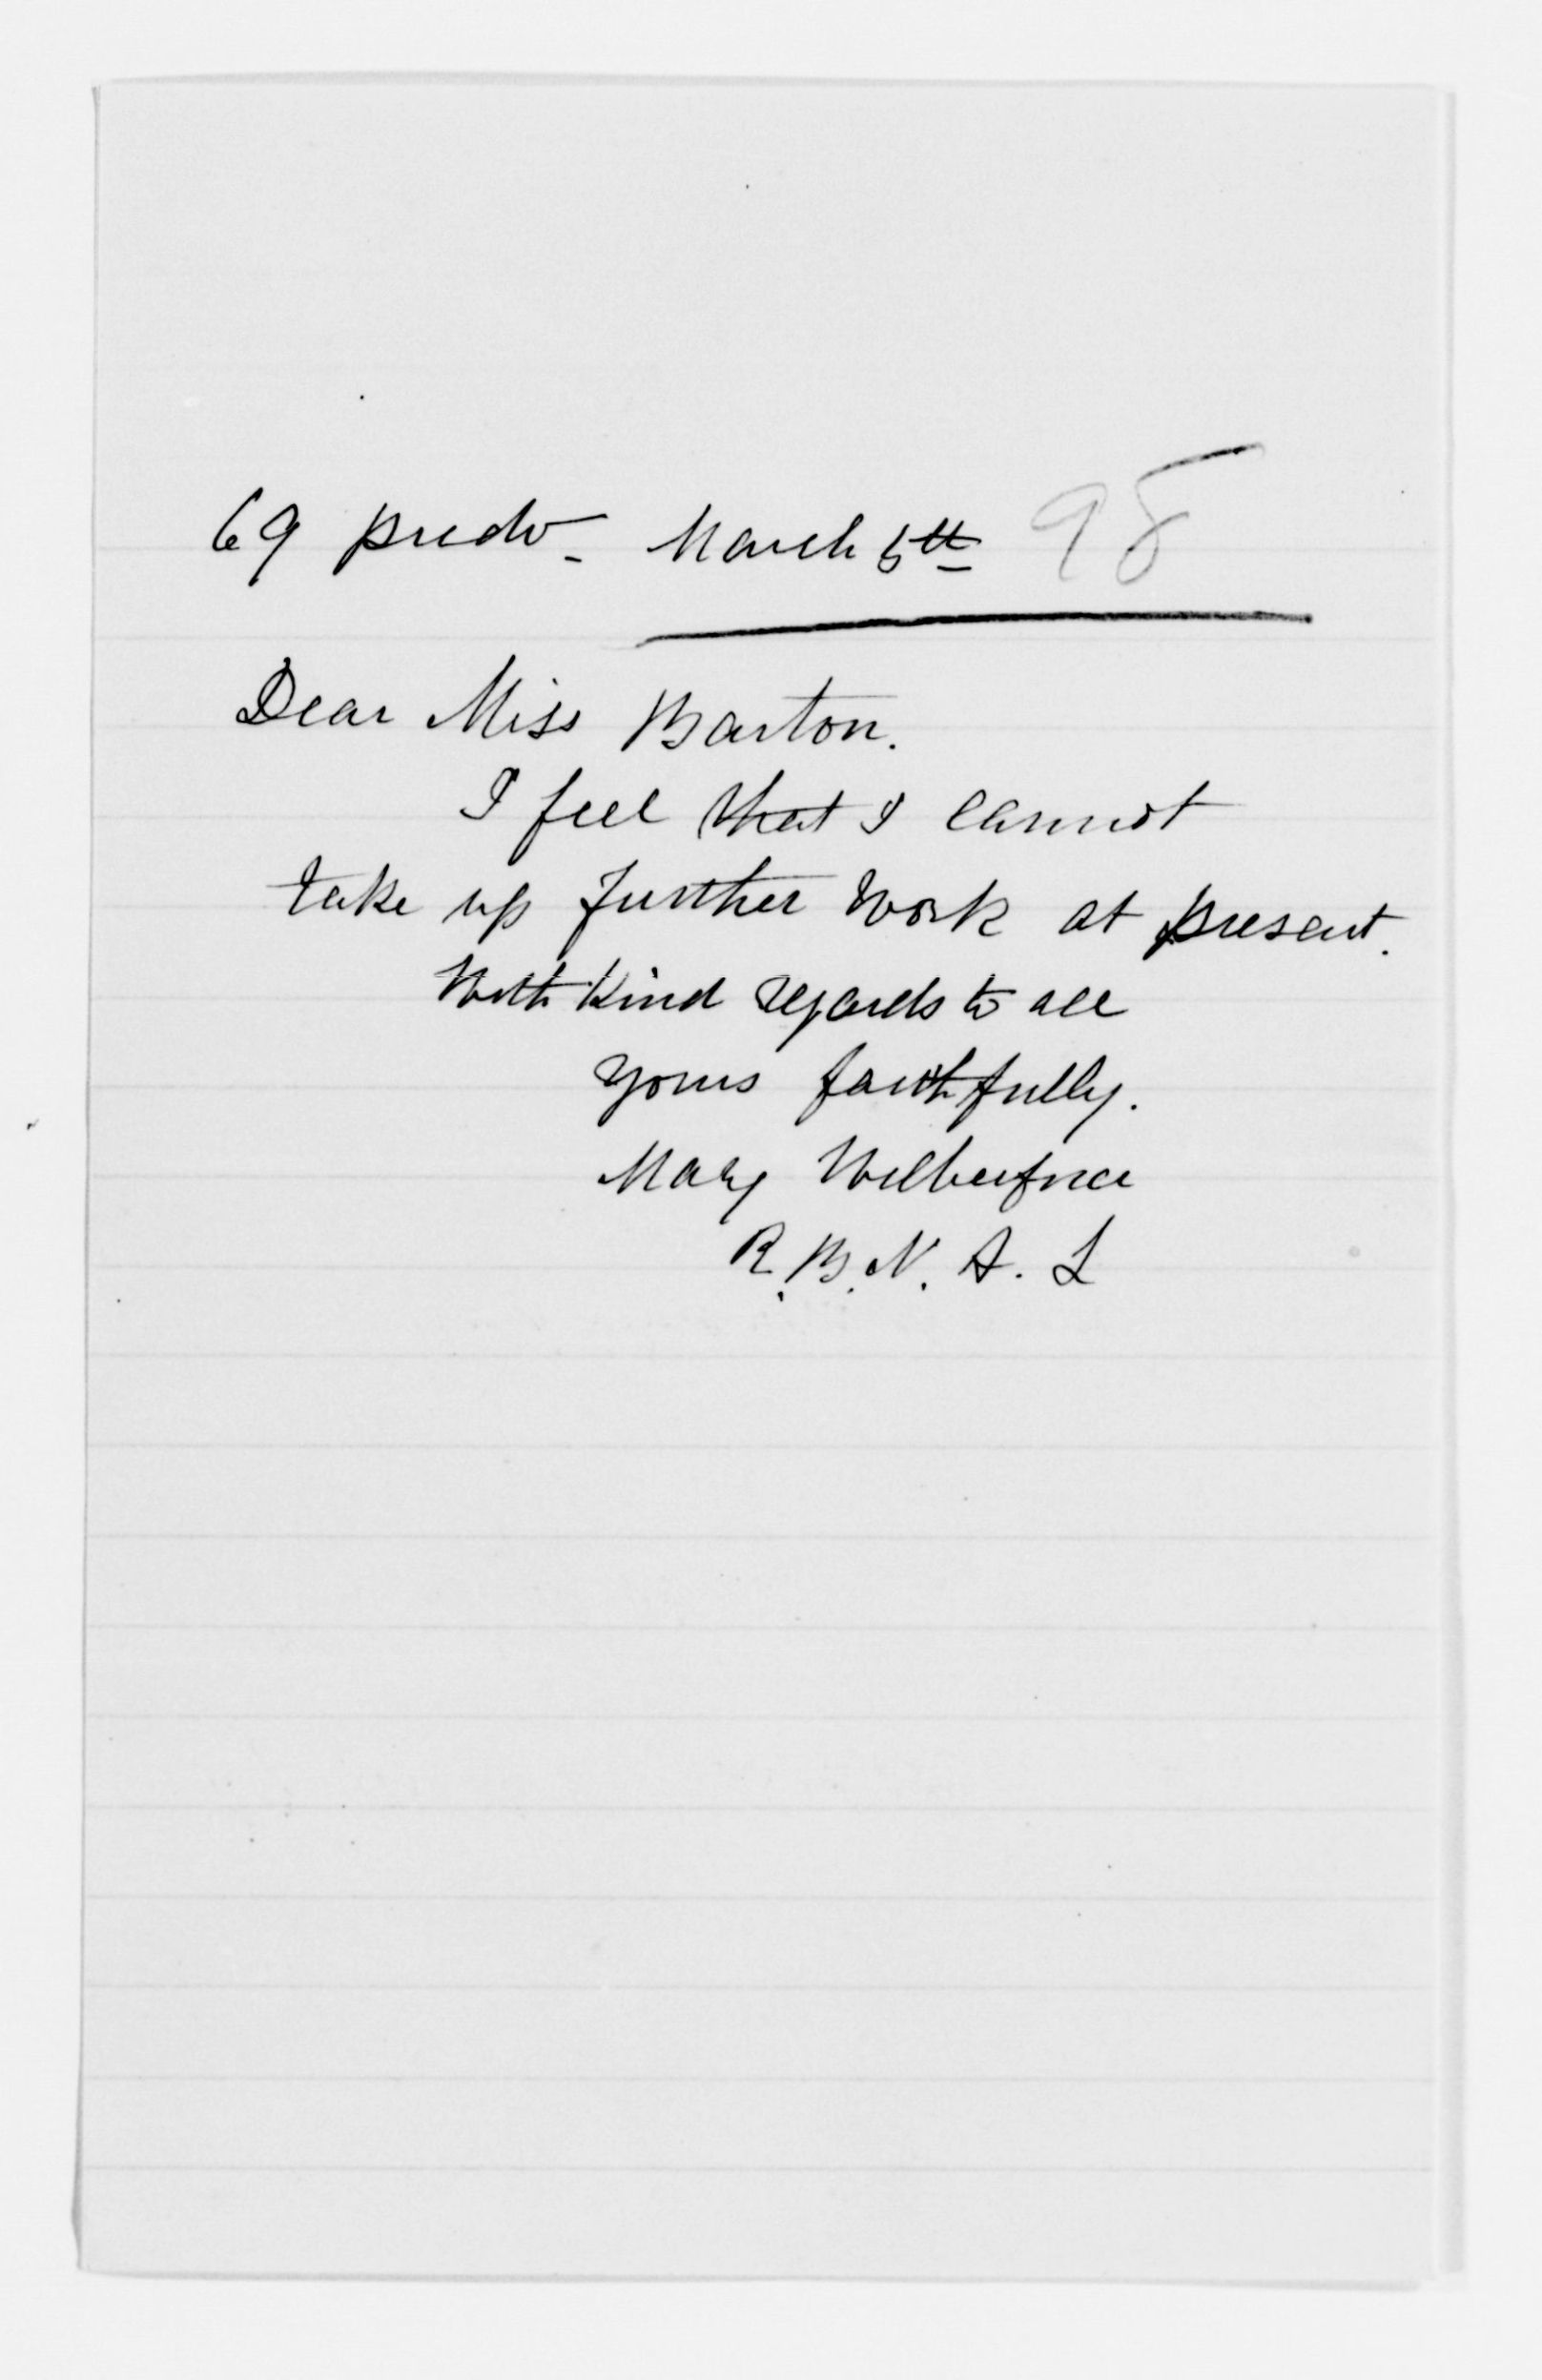 69 Prado - March 5th 98
Dear Miss Barton.
I feel that I cannot
take up further work at present.
With Kind regards to all
yours faithfully.
Mary Wilberforce
R. B. N. A. L